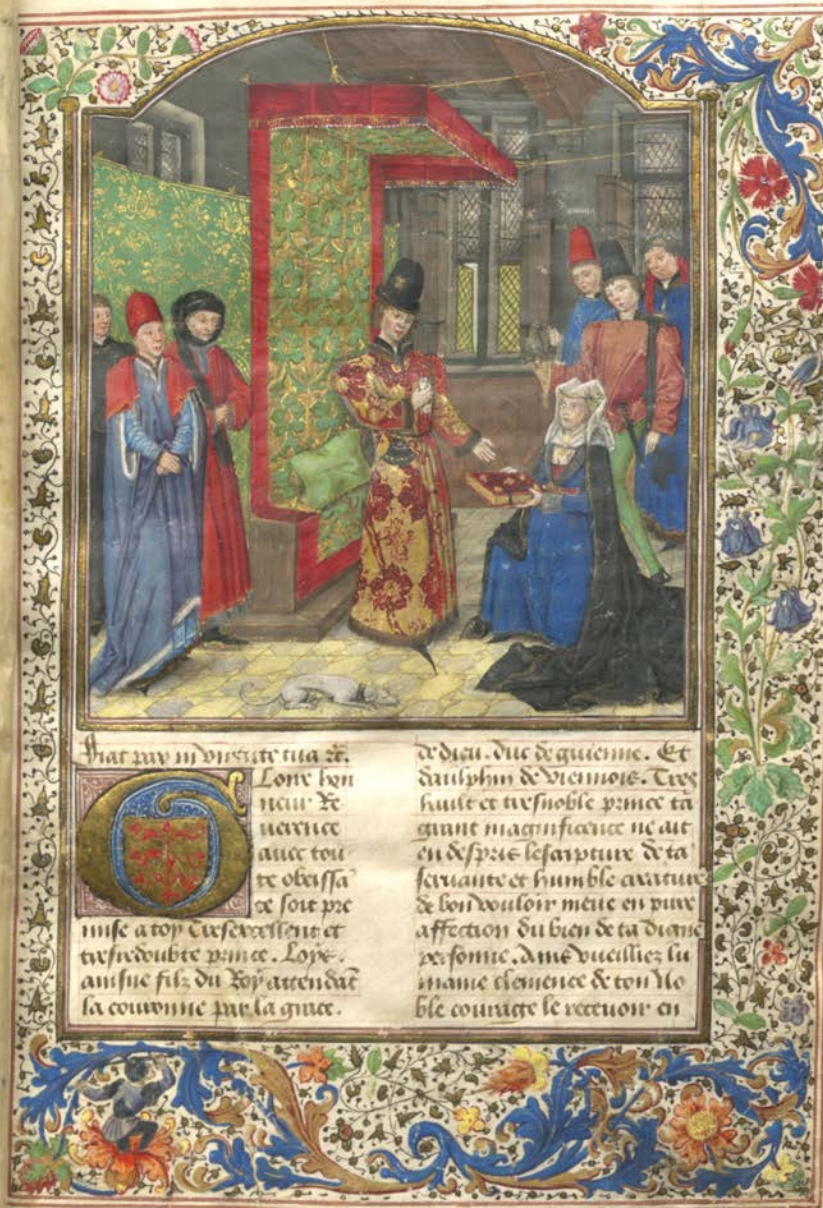 Fiat pax in virtute tua etc.
Gloire hon
neur Re
uerence
auec tou
te obeissã
ce soit pre
mise a toy Tresexcellent et
tresredoubte prince. Loys.
ainsne filz du Roy attendãt
la couronne par la grace.
de dieu. duc de guienne. Et
daulphin de viennois. Tres
hault et tresnoble prince ta
grant magnificence ne ait
en despris lescripture de ta
seruante et humble creature
de bon vouloir meue en pure
affection du bien de ta digne
personne. Ains vueilliez lu
maine clemence de ton No
ble couraige le receuoir en